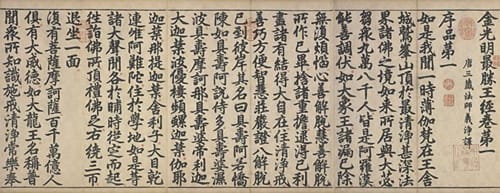 金光明最勝王經卷第一
唐三藏法師義淨譯
序品第一
如是我聞一時薄伽梵在王舍
城鷲峯山頂於最清淨甚深法
界諸佛之境如來所居與大苾
芻衆九萬八千人皆是阿羅漢
能善調伏如大象王諸漏已除
無復煩惱心善解脫慧善解脫
所作已畢捨諸重擔逮得己利
盡諸有結得大自在住清淨戒
善巧方便智慧莊嚴證八解脫
已到彼岸其名曰具壽阿若憍
陳如具壽阿說侍多具壽婆澁
波具壽摩訶那摩具壽婆帝利迦
大迦葉波優樓頻螺迦葉伽耶
迦葉那提迦葉舍利子大目乾
連唯阿難陀住於學地如是等
諸大聲聞各於晡時從定而起
往詣佛所頂禮佛足右繞三匝
退坐一面
復有菩薩摩訶薩百千萬億人
俱有大威德如大龍王名稱普
聞衆所知識施戒清淨常樂奉